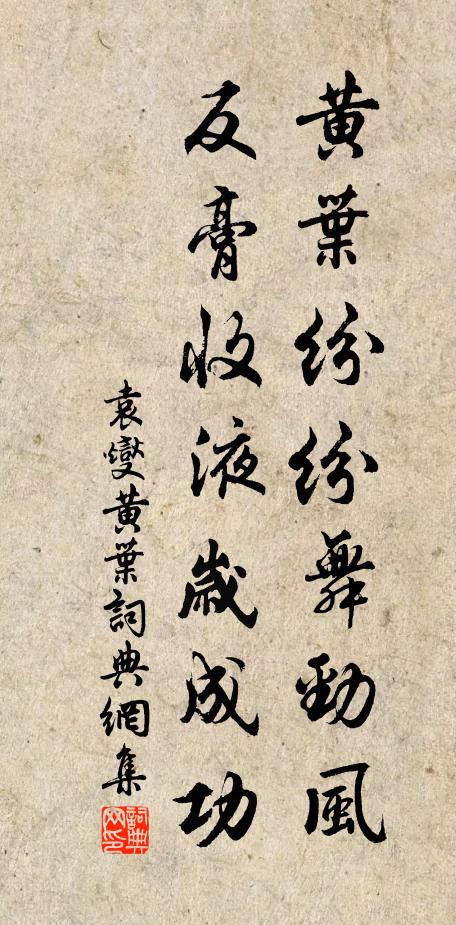 黃葉紛紛舞勁風
反膏收液歲成功
袁燮黃葉詞典網集
詞典
网印